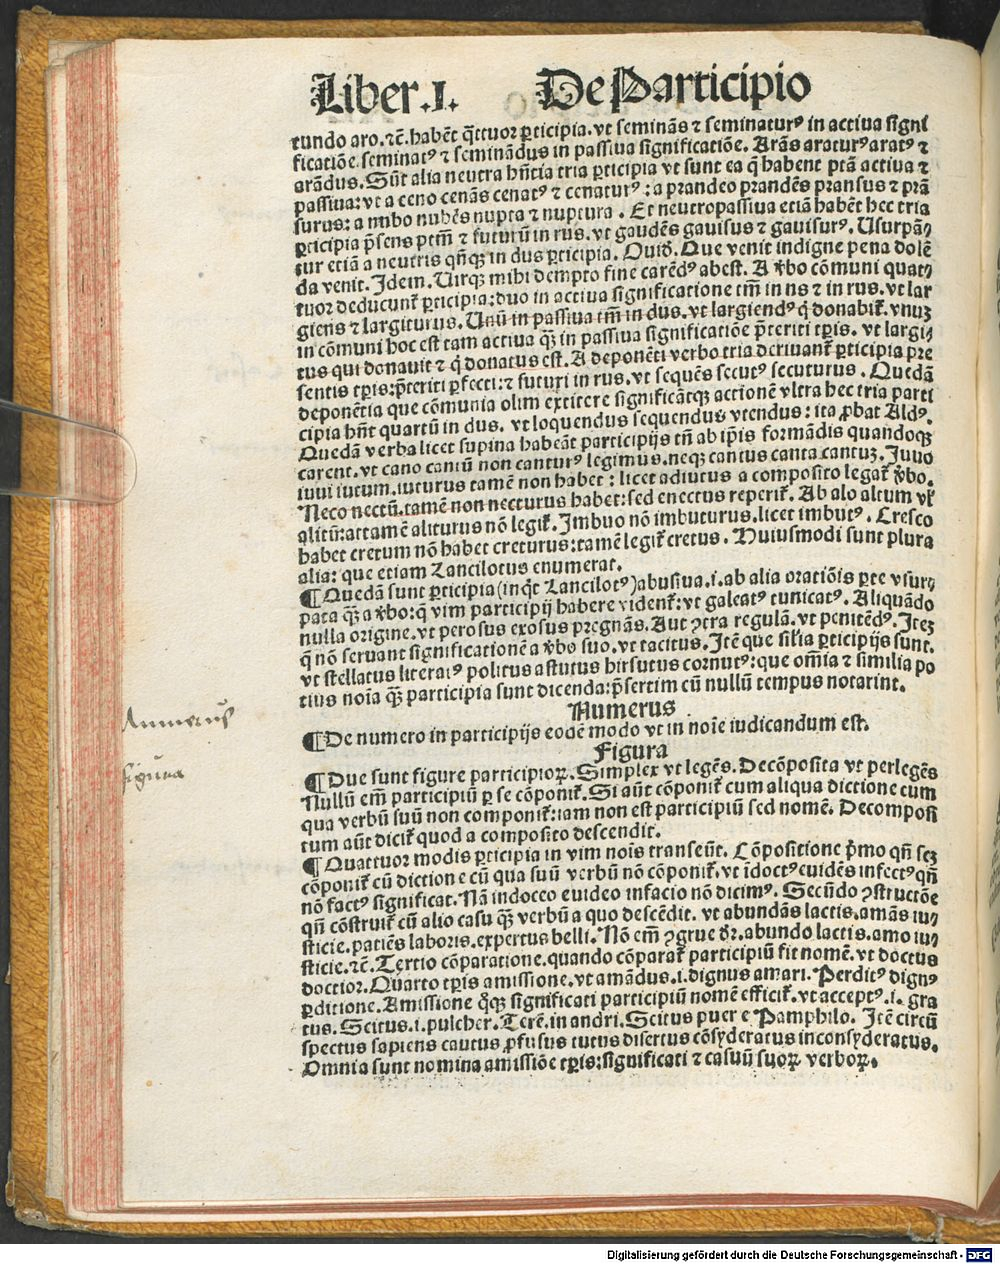 Liber .I. De Participio
tundo aro.⁊c̃. habẽt q̃ttuor ꝑticipia. vt seminãs ⁊ seminaturꝰ in actiua signi
ficatiõe. seminatꝰ ⁊ seminãdus in passiua significatiõe. Arãs araturꝰ aratꝰ ⁊
arãdus. Sũt alia neutra hñtia tria ꝑticipia vt sunt ea q̃ habent ptã actiua ⁊
passiua: vt a ceno cenãs cenatꝰ ⁊ cenaturꝰ: a prandeo prandẽs pransus ⁊ prã
surus: a nubo nubẽs nupta ⁊ nuptura. Et neutropassiua etiã habẽt hec tria
ꝑticipia p̃sens ptm̃ ⁊ futurũ in rus. vt gaudẽs gauisus ⁊ gauisurꝰ. Usurpãt
tur etiã a neutris qñqꝫ in dus ꝑticipia. Ouid̃. Que venit indigne pena dolẽ
da venit. Idem. Uirqꝫ mihi dempto fine carẽdꝰ abest. A v̾bo cõmuni quat⸗
tuor deducunt̃ ꝑticipia: duo in actiua significatione tm̃ in ns ⁊ in rus. vt lar
giens ⁊ largiturus. Unũ in passiua tm̃ in dus. vt largiendꝰ q̃ donabit̃. vnuꝫ
in cõmuni hoc est tam actiua qꝫ̃ in passiua significatiõe p̃teriti tꝑis. vt largi⸗
tus qui donauit ⁊ q̃ donatus est. A deponẽti verbo tria deriuant̃ ꝑticipia pre
sentis tꝑis: p̃teriti ꝑfecti: ⁊ futuri in rus. vt sequẽs secutꝰ secuturus. Quedã
deponẽtia que cõmunia olim extitere significãtqꝫ actionẽ vltra hec tria parti
cipia hñt quartũ in dus. vt loquendus sequendus vtendus: ita ꝓbat Aldꝰ.
Quedã verba licet supina habeãt participijs tñ ab ip̃is formãdis quandoqꝫ
carent. vt cano cantũ non canturꝰ legimus. neqꝫ cantus canta cantuꝫ. Iuuo
iuui iutum. iuturus tamẽ non habet: licet adiutus a composito legat̃ v̾bo.
Neco nectũ. tamẽ non necturus habet: sed enectus reperit̃. Ab alo altum vł
alitũ: attamẽ aliturus nõ legit̃. Imbuo nõ imbuturus. licet imbutꝰ. Cresco
habet cretum nõ habet creturus: tamẽ legit̃ cretus. Huiusmodi sunt plura
alia: que etiam Lancilotus enumerat.
¶ Quedã sunt ꝑticipia (inq̃t Lancilotꝰ) abusiua. i. ab alia oratiõis ꝑte vsur⸗
pata qꝫ̃ a v̾bo: q̃ vim participij habere vident̃: vt galeatꝰ tunicatꝰ. Aliquãdo
nulla origine. vt perosus exosus pregnãs. Aut ꝯtra regulã. vt penitẽdꝰ. Iteꝫ
q̃ nõ seruant significationẽ a v̾bo suo. vt tacitus. Itẽ que sił̃ia ꝑticipijs sunt.
vt stellatus literatꝰ politus astutus hirsutus cornutꝰ: que om̃ia ⁊ similia po
tius noĩa qꝫ̃ participia sunt dicenda: p̃sertim cũ nullũ tempus notarint.
Numerus
¶ De numero in participijs eodẽ modo vt in noĩe iudicandum est.
Numerus
Figura
figura
¶ Due sunt figure participioꝝ. Simplex vt legẽs. Decõposita vt perlegẽs
Nullũ em̃ participiũ ꝑ se cõponit̃. Si aũt cõponit̃ cum aliqua dictione cum
qua verbũ suũ non componit̃: iam non est participiũ sed nomẽ. Decomposi
tum aũt dicit̃ quod a composito descendit.
¶ Quattuor modis ꝑticipia in vim noĩs transeũt. Cõpositione p̃mo qñ seꝫ
cõponit̃ cũ dictione cũ qua suũ verbũ nõ cõponit̃. vt ĩdoctꝰ euidẽs infectꝰ qñ
nõ factꝰ significat. Nã indoceo euideo infacio nõ dicimꝰ. Secũdo ꝯstructõe
qñ cõstruit̃ cũ alio casu qꝫ̃ verbũ a quo descẽdit. vt abundãs lactis. amãs iu⸗
sticie. patiẽs laboris. expertus belli. Nõ em̃ ꝯgrue dr̃. abundo lactis. amo iu⸗
sticie. ⁊c̃. Tertio cõparatione. quando cõparat̃ participiũ fit nomẽ. vt doctus
doctior. Quarto tꝑis amissione. vt amãdus. i. dignus amari. Perditꝰ dignꝰ
ꝑditione. Amissione q̃qꝫ significati participiũ nomẽ efficit̃. vt acceptꝰ. i. gra
tus. Scitus. i. pulcher. Terẽ. in andri. Scitus puer e Pamphilo. Itẽ circũ
spectus sapiens cautus ꝓfusus tutus disertus cõsyderatus inconsyderatus.
Omnia sunt nomina amissiõe tꝑis: significati ⁊ casuũ suoꝝ verboꝝ.
Digitalisierung gefördert durch die Deutsche Forschungsgemeinschaft - DFG